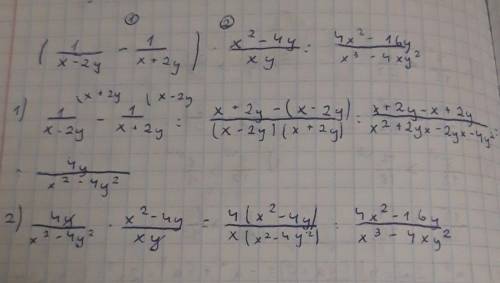 ① ②
(1/(x-2y) - 1/(x+2y)) · (x²-4y)/(xy) = (4x²-16y)/(x³-4xy²)
1) 1/(x-2y) \x+2y - 1/(x+2y) \x-2y = (x+2y-(x-2y))/((x-2y)(x+2y)) = (x+2y-x+2y)/(x²+2yx-2yx-4y²) =
= 4y/(x²-4y²)
2) 4y/(x²-4y²) · (x²-4y)/(xy) = 4(x²-4y)/(x(x²-4y²)) = (4x²-16y)/(x³-4xy²)